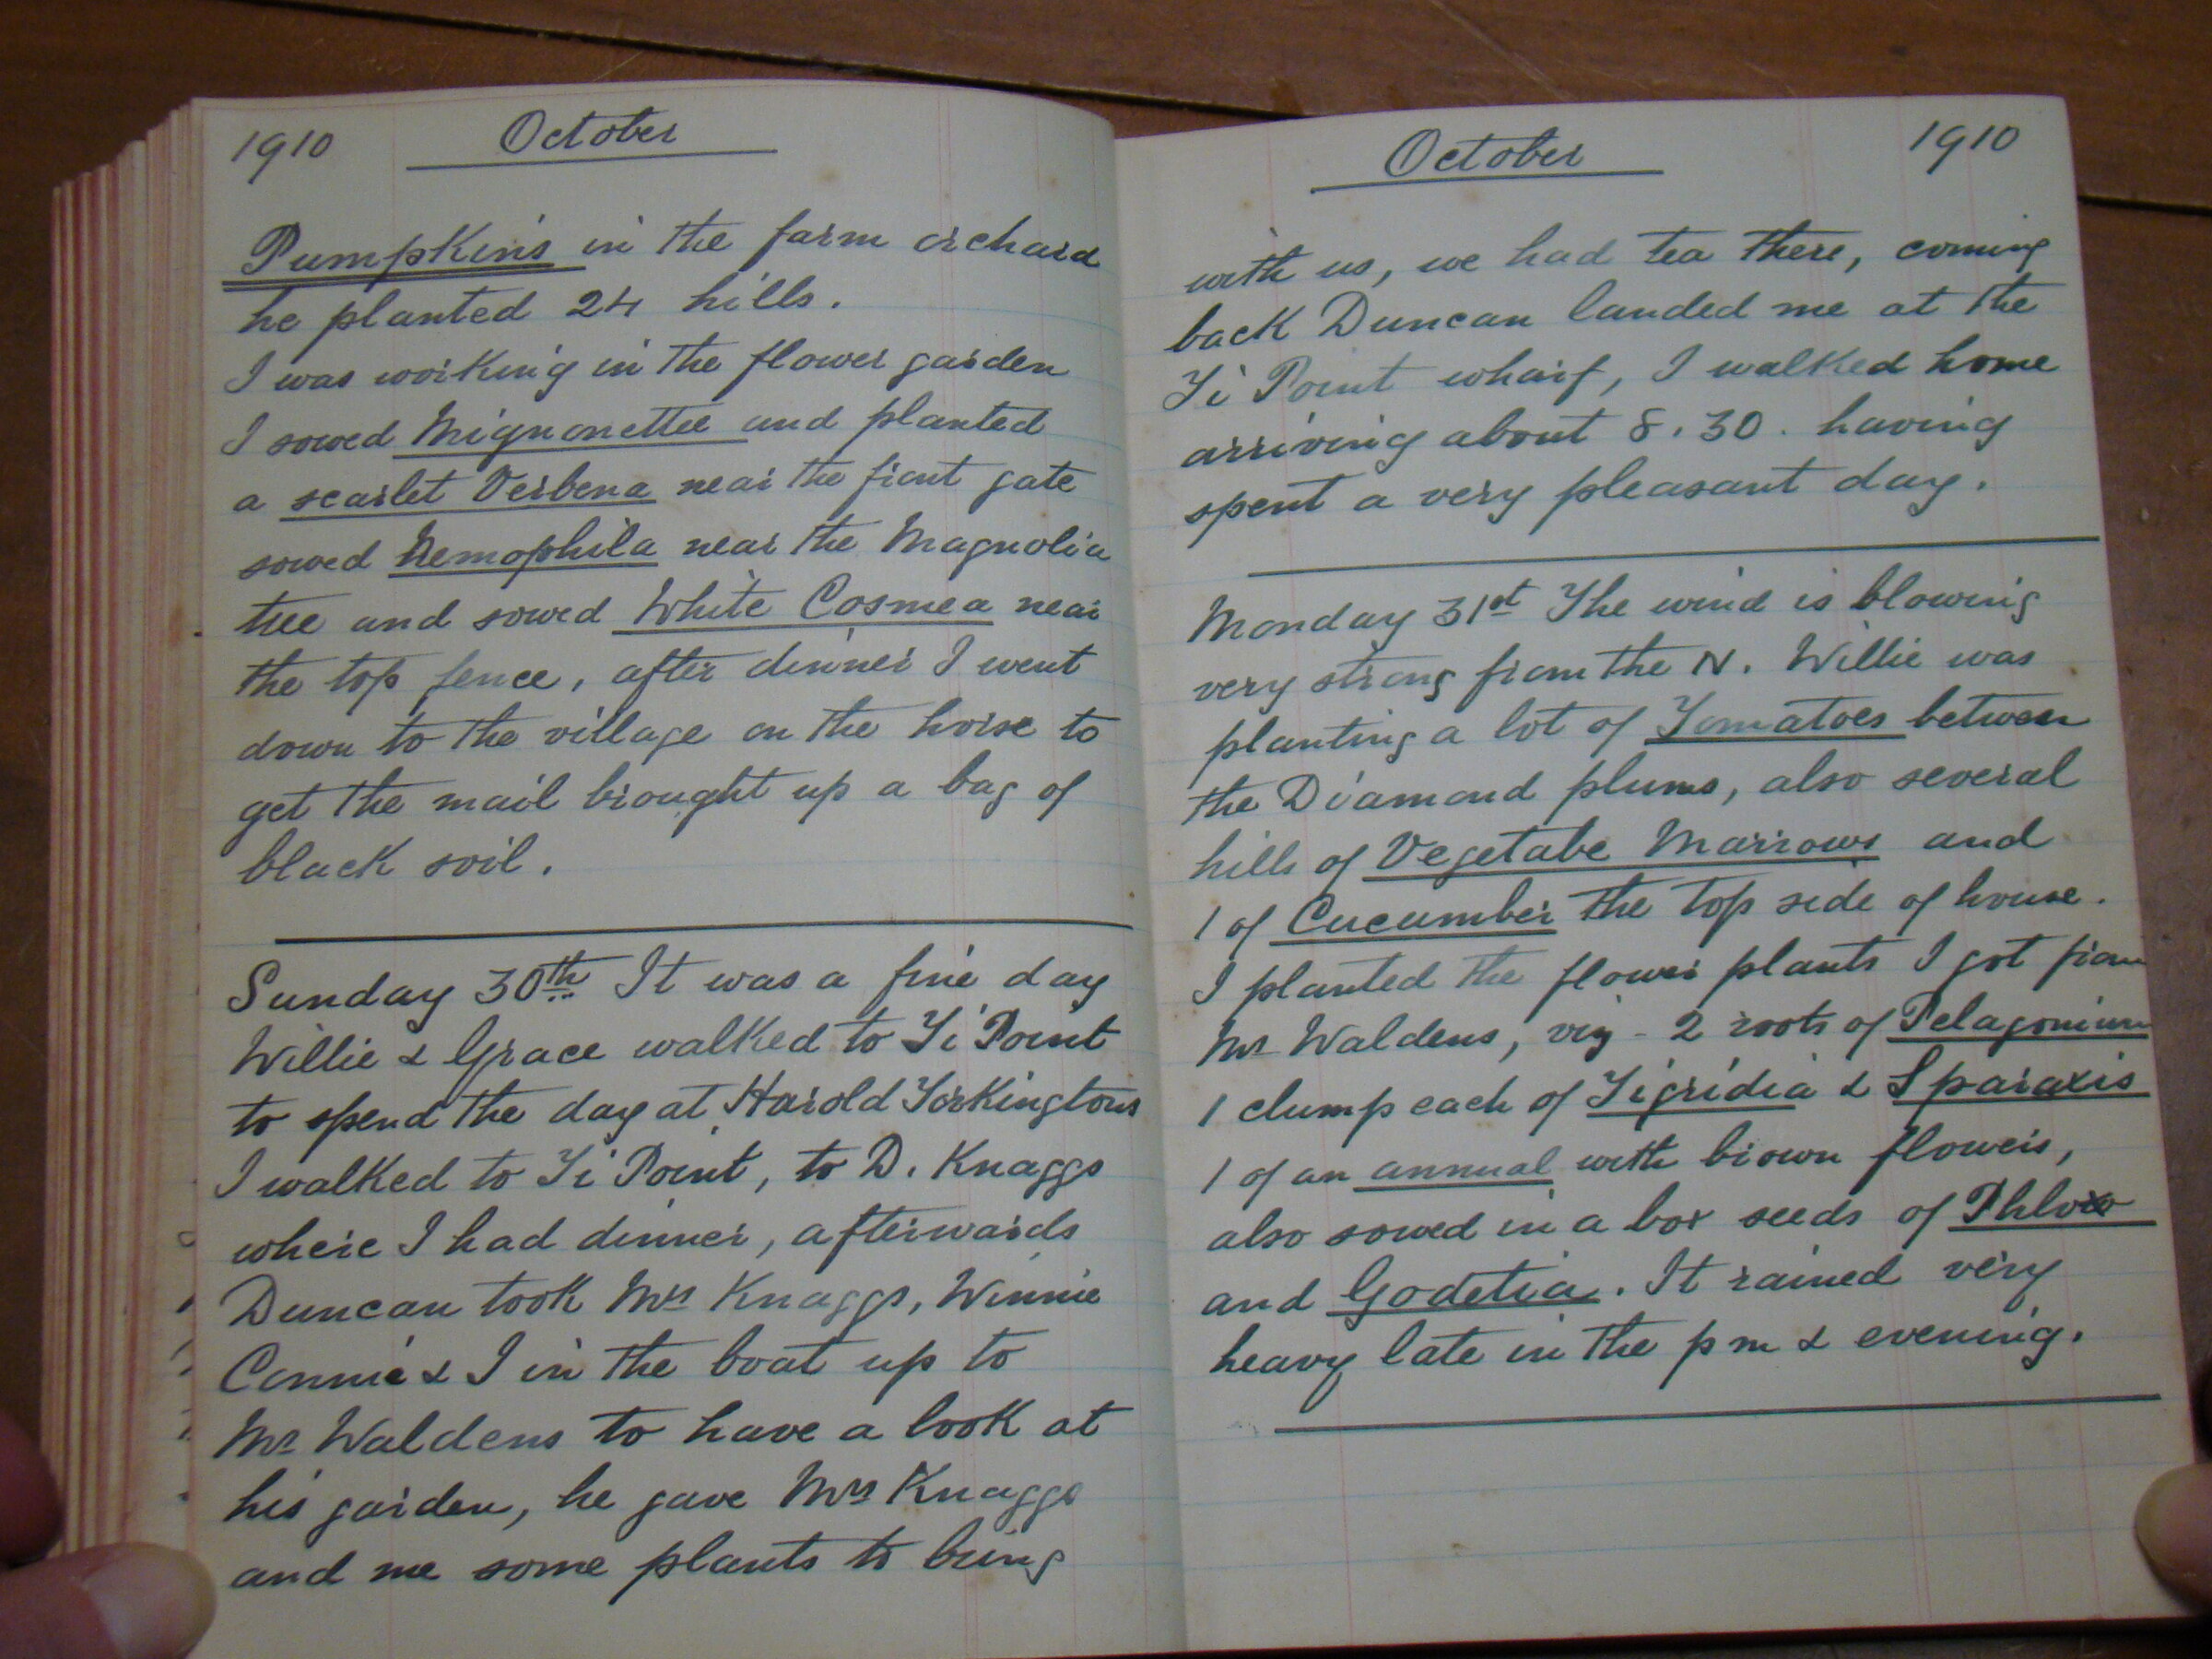 1910 October
Pumpkins in the farm orchard
he planted 24 hills.
I was working in the flower garden
I sowed Mignonettee and planted
a scarlet Verbena near the front gate
sowed Nemophila near the Magnolia
tree and sowed White Cosmea near
the top fence, after dinner I went
down to the village on the horse to
get the mail brought up a bag of
black soil.
Sunday 30th It was a fine day
Willie & Grace walked to Ti Point
to spend the day at Harold Torkingtons
I walked to Ti Point, to D. Knaggs
where I had dinner, afterwards
Duncan took Mrs Knaggs, Winnie
Connie & I in the boat up to
Mr Waldens to have a look at
his garden, he gave Mrs Knaggs
and me some plants to bring
October 1910
with us, we had tea there, coming
back Duncan landed me at the
Ti Point wharf, I walked home
arriving about 8.30. having
spent a very pleasant day.
Monday 31st The wind is blowing
very strong from the N. Willie was
planting a lot of Tomatoes between
the Diamond plums, also several
hills of Vegetabe Marrows and
1 of Cucumber the top side of house.
I planted the flower plants I got from
Mr Waldens, viz - 2 roots of Pelagonium
1 clump each of Tigridia & Sparaxis
1 of an annual with brown flowers,
also sowed in a box seeds of Phlox
and Godetia. It rained very
heavy late in the pm & evening.